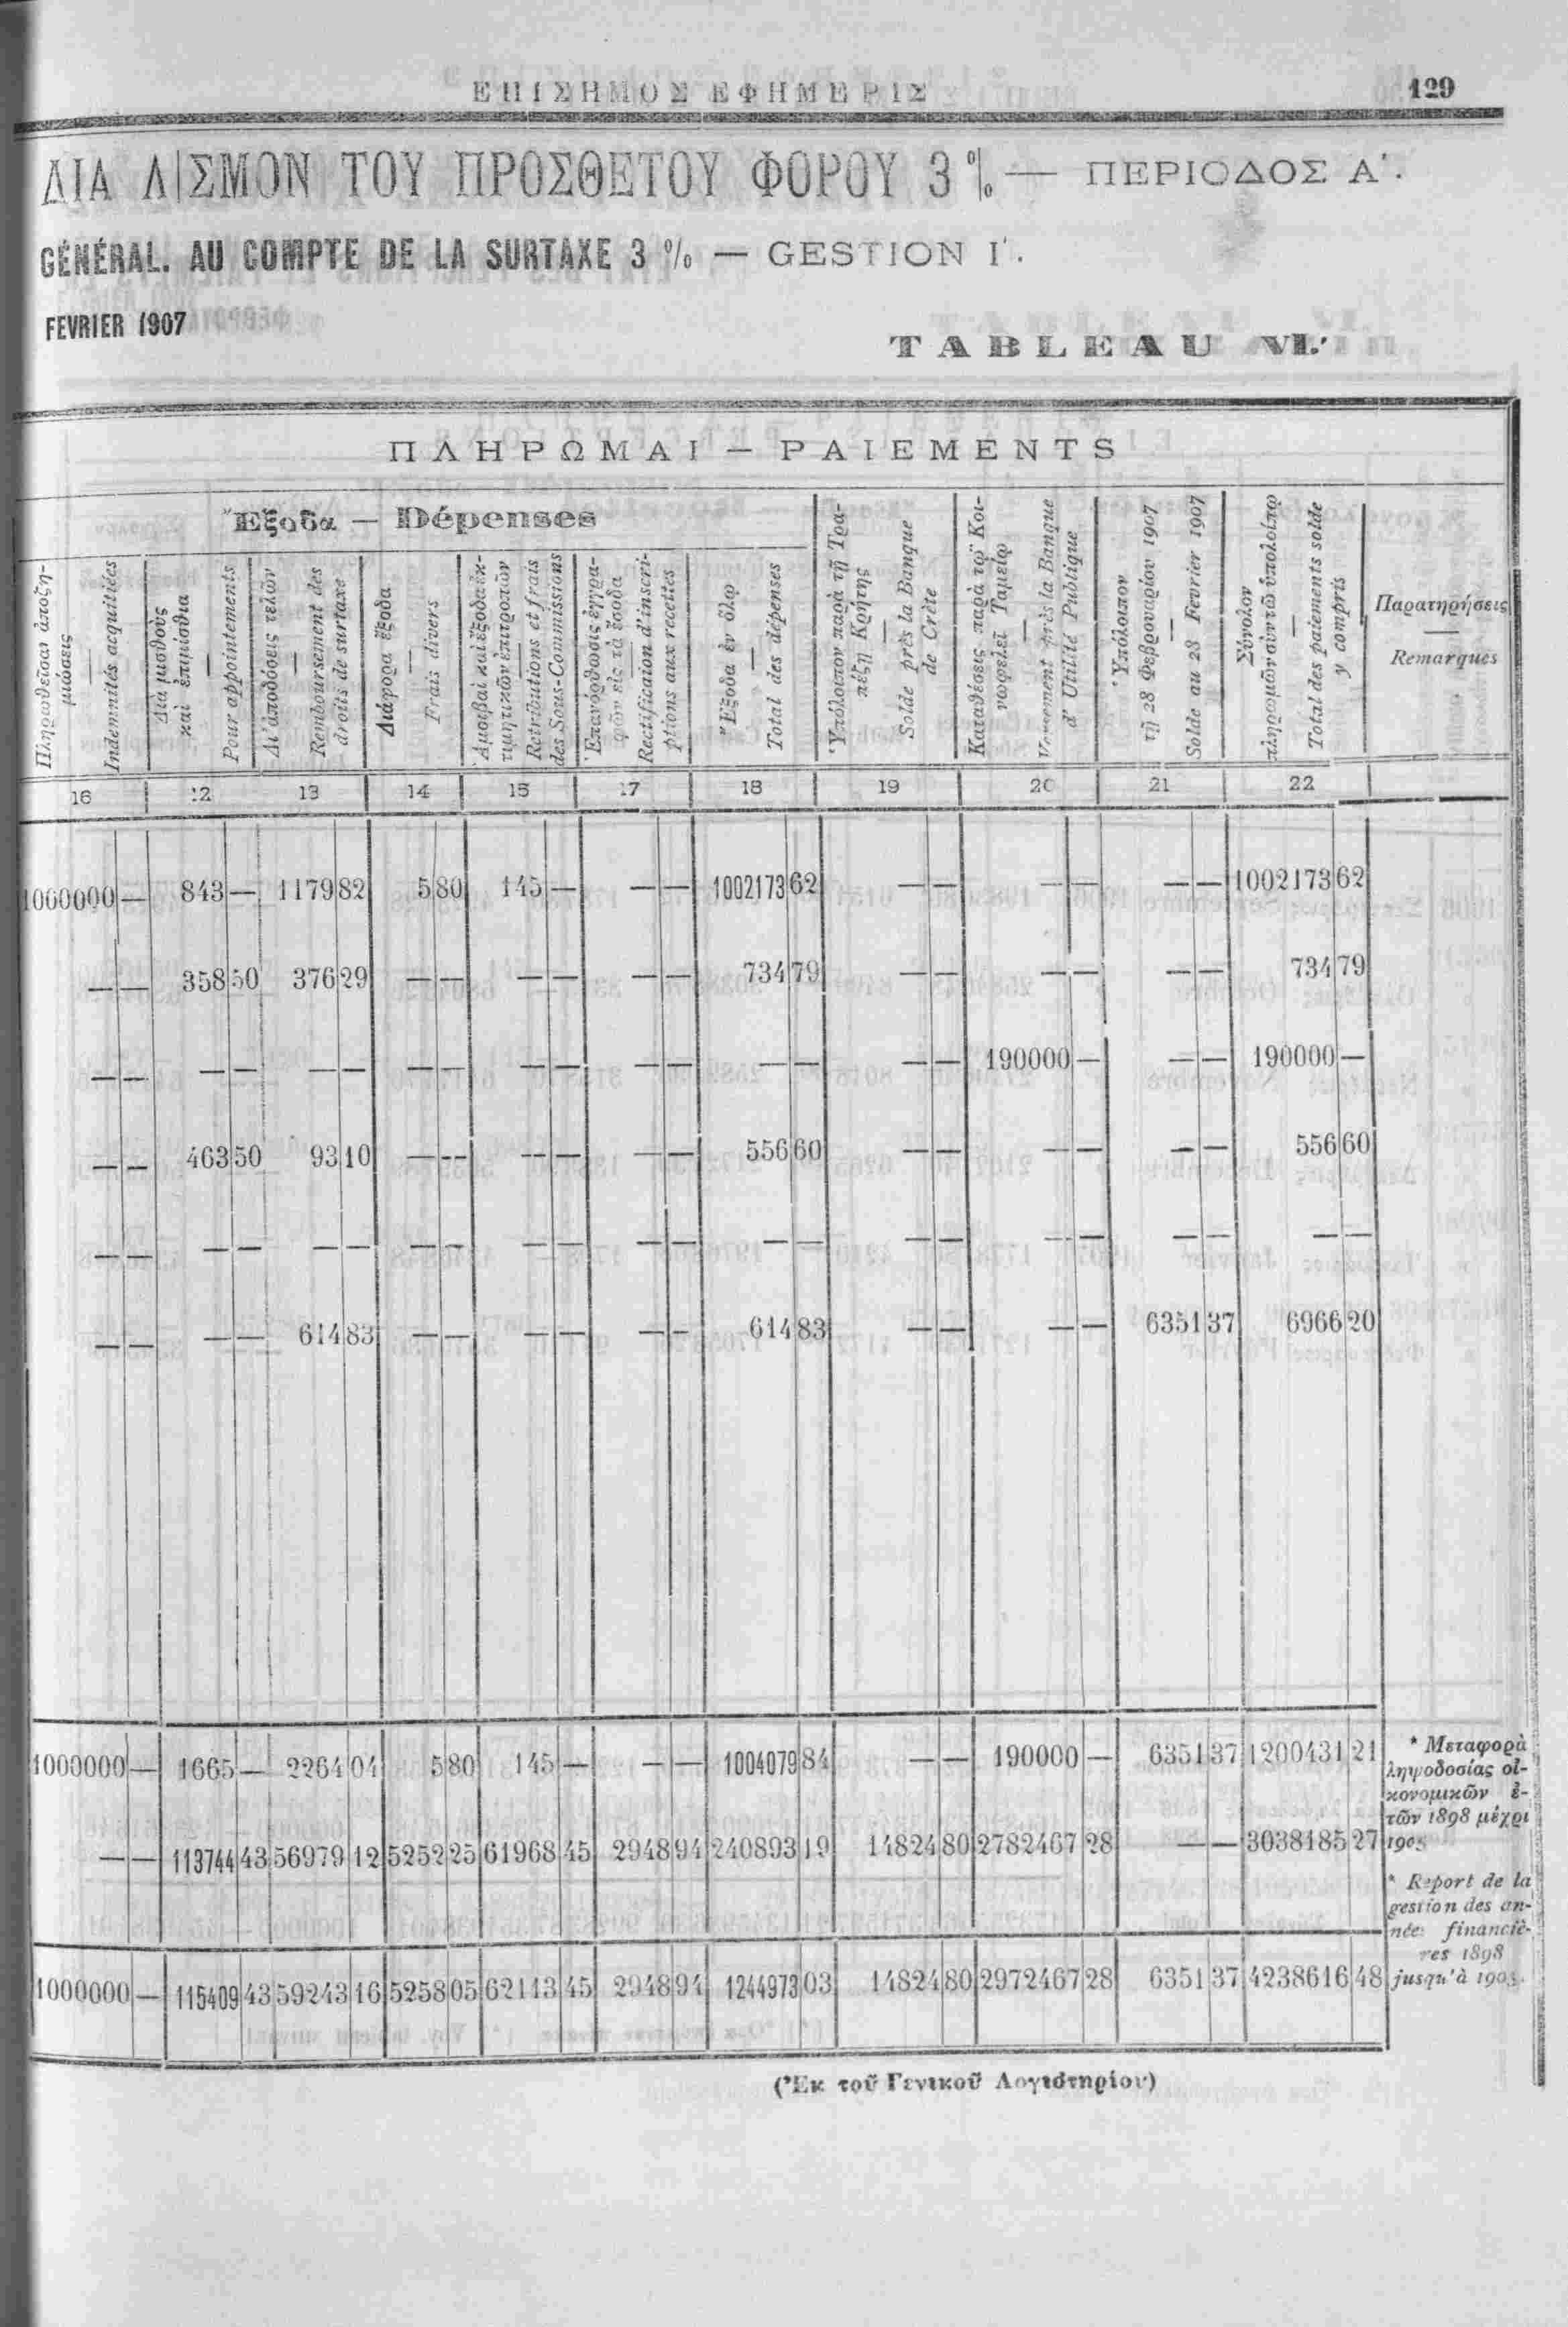 ΕΠΙΣΗΜΟΣ ΕΦΗΜΕΡΙΣ 129
ΔΙΑ ΛΙΣΜΟΝ ΤΟΥ ΠΡΟΣΘΕΤΟΥ ΦΟΡΟΥ 3 % — ΠΕΡΙΟΔΟΣ Α΄.
GÉNÉRAL. AU COMPTE DE LA SURTAXE 3 % — GESTION I΄.
FEVRIER 1907
TABLEAU VI.
ΠΛΗΡΩΜΑΙ — PAIEMENTS
Ἔξοδα — Dépenses
Πληρωθεῖσαι ἀποζημιώσεις — Indemnités acquittées
Διὰ μισθοὺς καὶ ἐπιμίσθια — Pour appointements
Δι' ἀποδόσεις τελῶν — Remboursement des droits de surtaxe
Διάφορα ἔξοδα — Frais divers
Ἀμοιβαὶ καὶ ἔξοδα ἐκτιμητικῶν ἐπιτροπῶν — Retributions et frais des Sous-Commissions
Ἐπανόρθωσις ἐγγραφῶν εἰς τὰ ἔσοδα — Rectification d'inscriptions aux recettes
Ἔξοδα ἐν ὅλῳ — Total des dépenses
Ὑπόλοιπον παρὰ τῇ Τραπέζῃ Κρήτης — Solde près la Banque de Crète
Καταθέσεις παρὰ τῷ Κοινωφελεῖ Ταμείῳ — Versement près la Banque d' Utilité Publique
Ὑπόλοιπον τῇ 28 Φεβρουαρίου 1907 — Solde au 28 Fevrier 1907
Σύνολον πληρωμῶν σὺν τῷ ὑπολοίπῳ — Total des paiements solde y compris
Παρατηρήσεις — Remarques
16 12 13 14 15 17 18 19 20 21 22
1000000 — 843 — 1179 82 5 80 145 — — — 1002173 62 — — — — — — 1002173 62
— — 358 50 376 29 — — — — — — 734 79 — — — — — — 734 79
— — — — — — — — — — — — — — — — 190000 — — — 190000 —
— — 463 50 93 10 — — — — — — 556 60 — — — — — — 556 60
— — — — — — — — — — — — — — — — — — — — — —
— — — — 614 83 — — — — — — 614 83 — — — — 6351 37 6966 20
1000000 — 1665 — 2264 04 5 80 145 — — — 1004079 84 — — 190000 — 6351 37 1200431 21
— — 113744 43 56979 12 5252 25 61968 45 2948 94 240893 19 14824 80 2782467 28 — — 3038185 27
1000000 — 115409 43 59243 16 5258 05 62113 45 2948 94 1244973 03 14824 80 2972467 28 6351 37 4238616 48
* Μεταφορὰ
ληψοδοσίας οἰ-
κονομικῶν ἐ-
τῶν 1898 μέχρι
* Report de la
gestion des an-
nées financiè-
res 1898
jusqu'à
(Ἐκ τοῦ Γενικοῦ Λογιστηρίου)